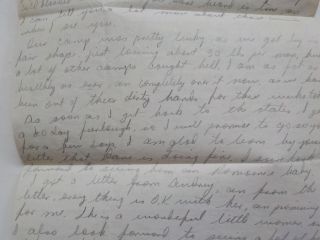 I can tell you a lot more about this when
when I see you.
Our camp was pretty lucky as we got by in
fair shape, just losing about 30 lbs per man, but
a lot of other camps caught hell. I am as fat &
healthy as ever, am completely over it now, as we have
been out of there dirty hands for three weeks
As soon as I get back to the states I get
a 60 day furlough, so I will promise to go
for a few days. I am glad to learn by your
letter that Dave is doing fine. I sure look
forward to seeing him an
I got a letter from Audrey, am from the
letter, every thing is O.K with her, an
for me. She's a wonderful little women
I also look forward to seeing